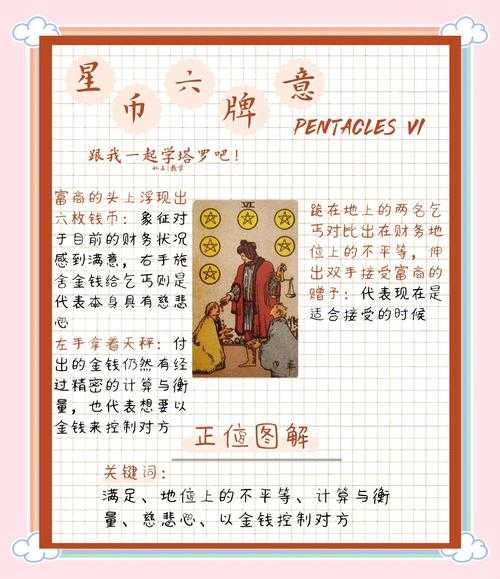 星币六牌意
PENTACLES VI
跟我一起学塔罗吧！
富商的头上浮现出
六枚钱币：象征对
于目前的财务状况
感到满意，右手施
舍金钱给乞丐则是
代表本身具有慈悲
心
左手拿着天秤：付
出的金钱仍然有经
过精密的计算与衡
量，也代表想要以
金钱来控制对方
VI
跪在地上的两名乞
丐对比出在财务地
位上的不平等，伸
出双手接受富商的
赠予：代表现在是
适合接受的时候
正位图解
关键词：
满足、地位上的不平等、计算与衡
量、慈悲心、以金钱控制对方